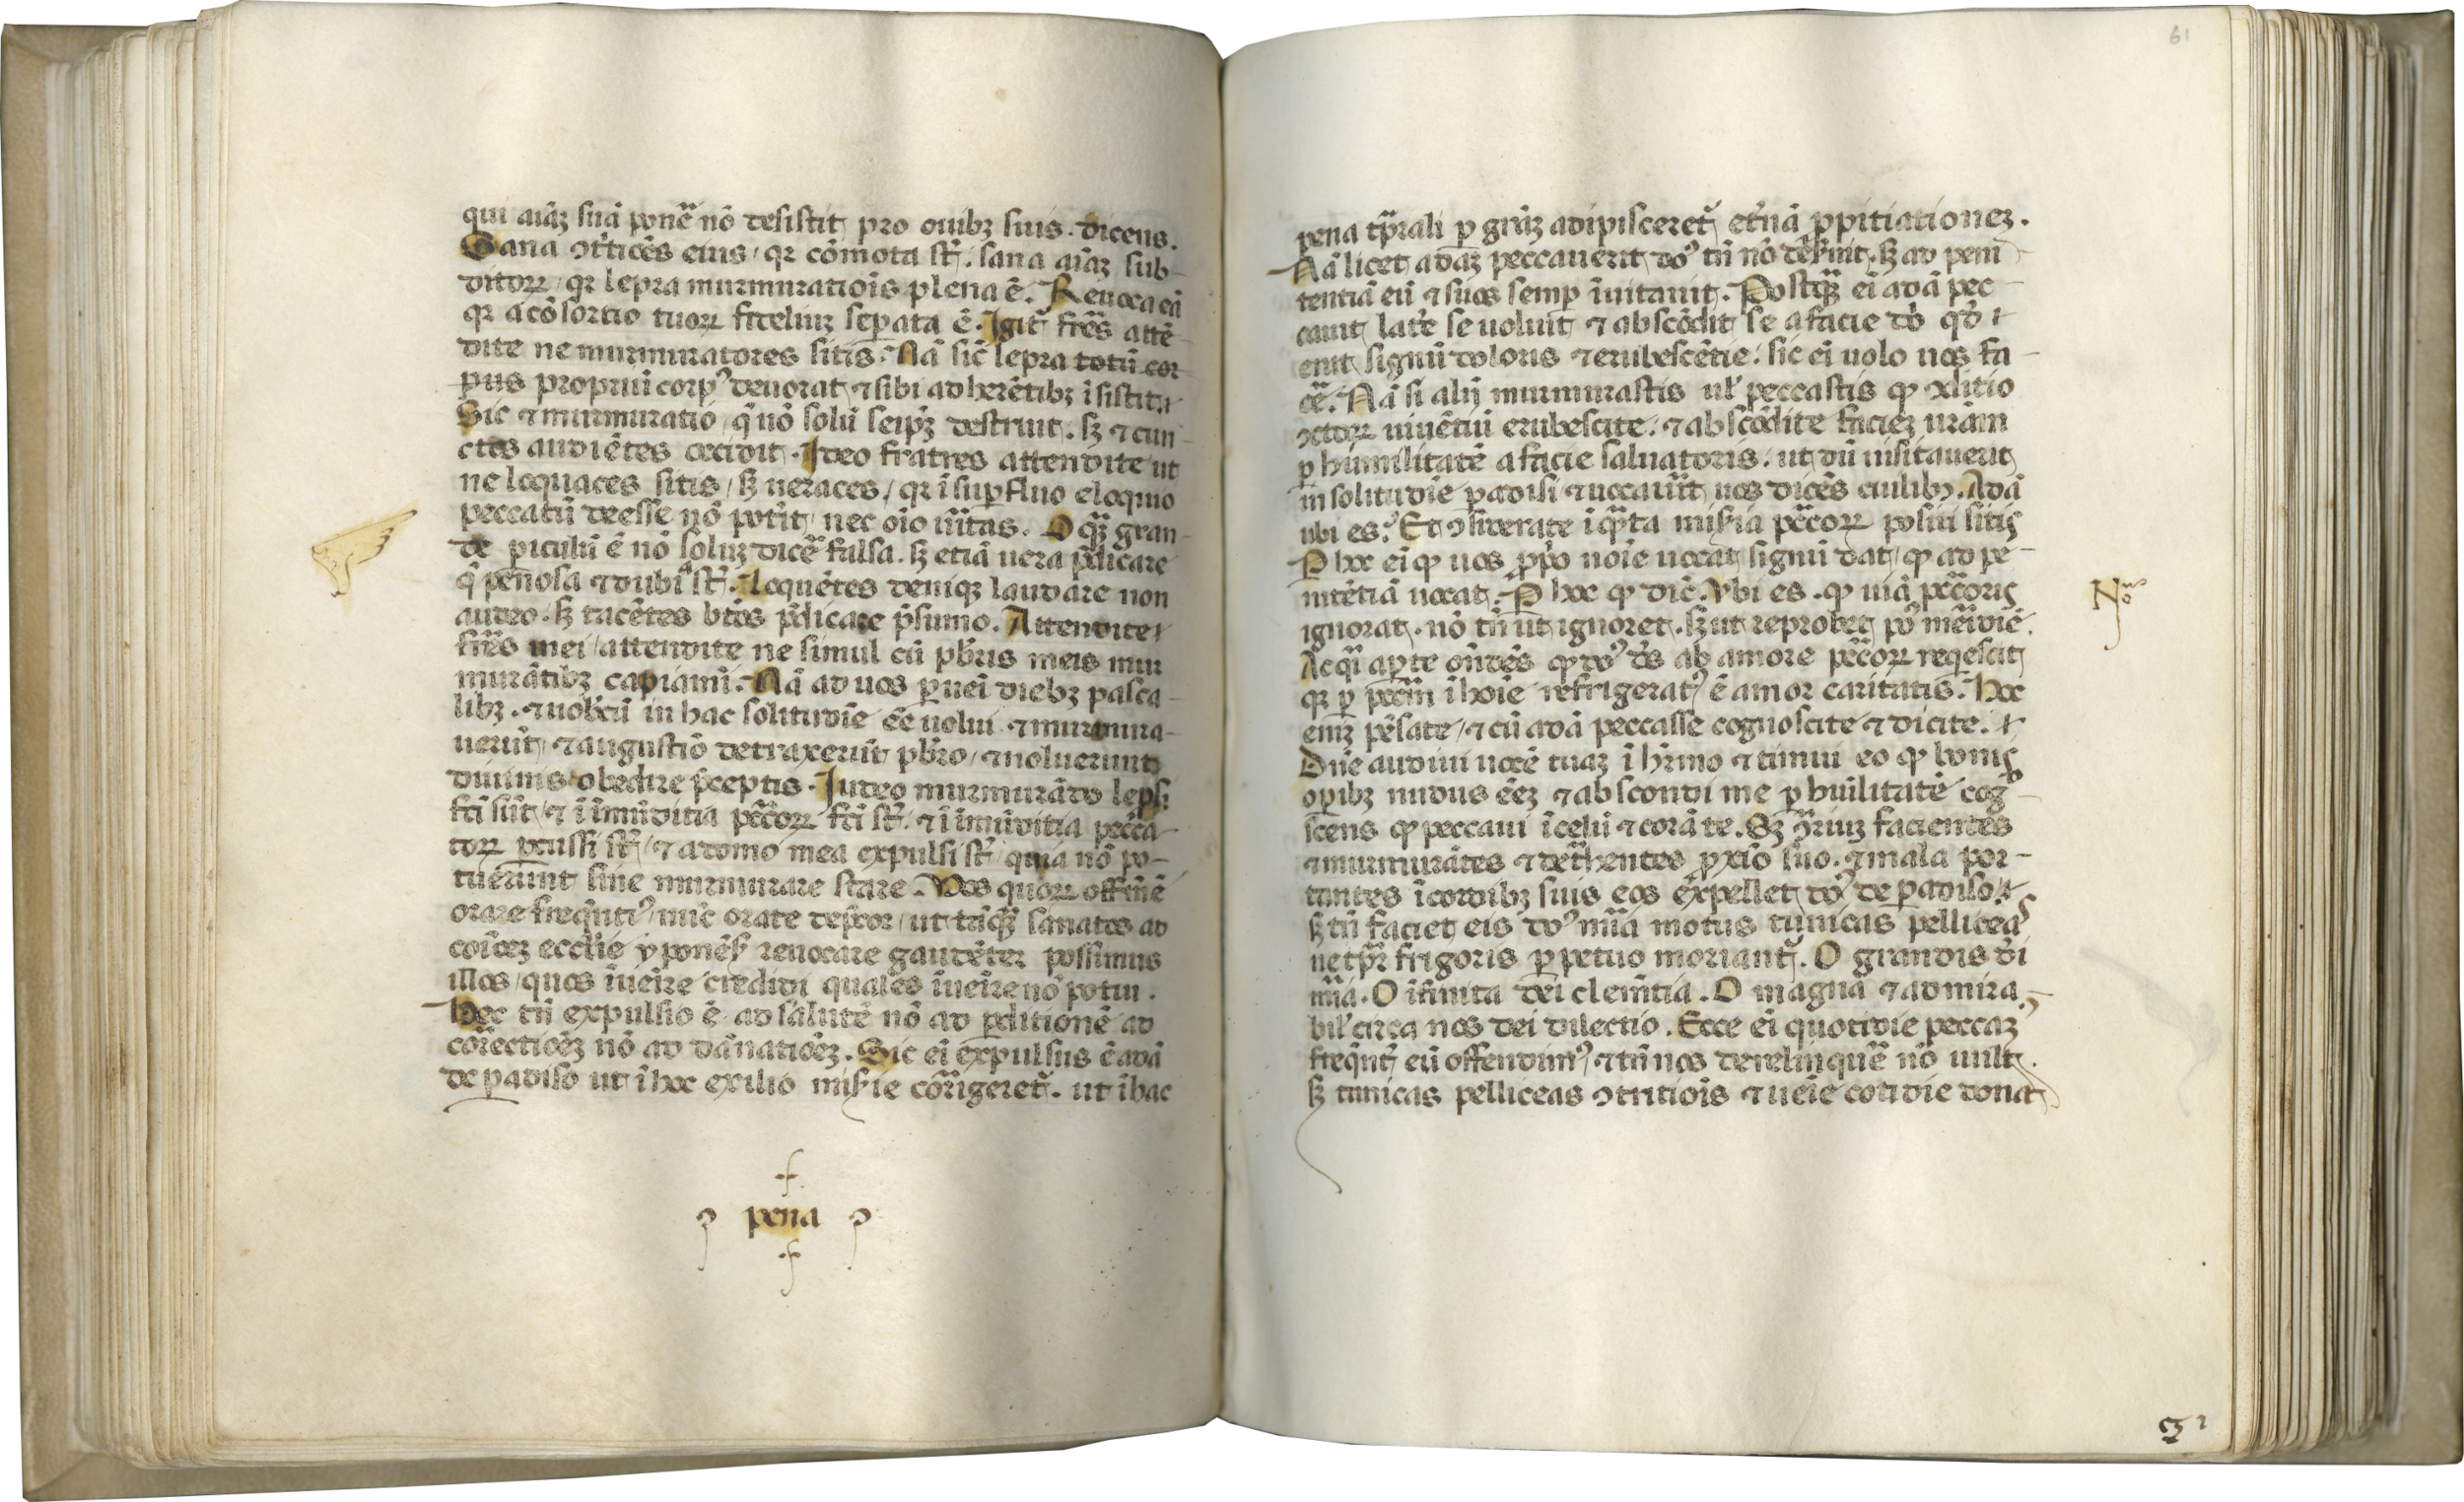 qui aīaʒ suā ponē nō desistit pro ouibʒ suis. dicens.
Sana ꝯt̄ticōs eius / qr cōmota st̄. sana aīaʒ sub-
ditoꝝ / qr lepra murmuratiōis plena ē. Reuoca eā
qr a cōsortio tuoꝝ fideliuʒ seꝑata ē. Igit᷑ fr̄es attē-
dite ne murmuratores sitis. Nā sic̄ lepra totū cor
pus propriuī corpꝰ deuorat ⁊ sibi adherētibʒ īsistit
Sic ⁊ murmuratio / q̄ nō solū seip̄ʒ destruit. sʒ ⁊ cun-
ctos audiētes occidit. Ideo fratres attendite ut
ne loquaces sitis / sʒ ueraces / qr ī suꝑfluo eloquio
peccatū deesse nō potīt / nec oīo ūitas. O qʒ gran-
de ꝑiculū ē nō soluʒ dicē falsa. sʒ etiā uera p̄dicare
q̄ penosa ⁊ dubia st̄. Loquētes deniqʒ laudare non
audeo. sʒ tacētes btōs p̄dicare p̄sumo. Attendite
fr̄es mei / attendite ne simul cū pb̄ris meis mur
murātibʒ capiāmī. Nā ad uos ꝑueī diebʒ pasca-
libʒ. ⁊ uobcū in hac solitudīe eē uolui ⁊ murmura-
uerūt / ⁊ augustiō detraxerūt pb̄ro / ⁊ noluerunt
diuinis obedire p̄ceptis. Iudeo murmurādo lepsi
fc̄i sūt / ⁊ ī īmūditia pc̄coꝝ fc̄i st̄ ⁊ ī īmūditia pecca-
toꝝ ꝑcussi st̄ / ⁊ a domo mea expulsi st̄ quia nō po-
tuerunt sine murmurare stare. Vos quoꝝ offm̄ ē
orare freqūtiꝰ / nūc orate dep̄cor / ut tāqʒ sanatos ad
coīōeʒ ecclīe yponēs̄ reuocare gaudēter possimus
illos / quos īueīre credidi quales īueīre nō potui.
Hec tn̄ expulsio ē ad salutē nō ad ꝑditionē ad
correctiōeʒ nō ad dānatiōeʒ. Sic eī expulsus ē adā
de ꝑadiso ut ī hoc exilio mis̄ie cōrrigeret᷑. ut ī hac
pena
61
pena tp̄rali ꝑ grāʒ adipisceret᷑ et̄nā ꝓpitiationeʒ.
Nā licet adaʒ peccauerit dōꝰ tn̄ nō derḯnit. sʒ ad peni
tentiā eū ⁊ suos semꝑ īuitauit. Postqʒ eī adā pec-
cauit latē se uoluit ⁊ abscōdit se a facie dō qd̄
erit signū doloris ⁊ erubescētie. sic eī uolo uos fa-
cē. Nā si alij murmurastis ul̄ peccastis ꝙ xl̄itio
ꝯctoꝝ uiuētiū erubescite. ⁊ abscōdite facieʒ urām
ꝑ humilitatē a facie saluatoris. ut dū uisitauerit
in solitudīe ꝑadisi ⁊ uocauīt uos dicēs cuilibʒ. Adā
ubi es? Et ꝯsiderate ī qn̄ta mis̄ia pc̄coꝝ positi sitis
P hoc eī ꝙ uos ꝓpo noīe uocat signū dat / ꝙ ad pe-
nitētiā uocat. P hoc ꝙ dic̄. Vbi es. ꝙ uiā pc̄coris
Nō
ignorat. nō tn̄ ut ignoret. sʒ ut reprobet pꝰ merīdiē.
Ac qi aꝑte on̄dēs ꝙ dōꝰ dōs ab amore pc̄coꝝ reqescit
qr ꝑ pcc̄m ī hoīe refrigeratꝰ ē amor caritatis. Hoc
eniʒ pēsate / ⁊ cū adā peccasse cognoscite ⁊ dicite.
Dn̄e audiui uocē tuaʒ ī hr̄mo ⁊ timui eo ꝙ bonis
oꝑibʒ nudus eēʒ ⁊ abscondi me ꝑ huīlitatē cogꝰ
scens ꝙ peccaui ī celū ⁊ corā te. Sʒ ꝯ̄riuʒ facientes
⁊ murmurātes ⁊ detrahentes ꝓxīo suo. ⁊ mala por-
tantes ī cordibʒ suis eos expellet dōꝰ de ꝑadiso
sʒ tn̄ faciet eis dōꝰ mīa motus tunicas pelliceas
ne tp̄r frigoris ꝑpetuo moriant᷑. O grandis d̄i
mīa. O īfinita dei clemētia. O magna ⁊ admira
bil̄ circa nos dei dilectio. Ecce eī quotidie peccaʒ
freqn̄t eū offendimꝰ / ⁊ tn̄ nos derelinquē nō uult.
sʒ tunicas pelliceas ꝯtritiōis ⁊ ueīe cotidie donat